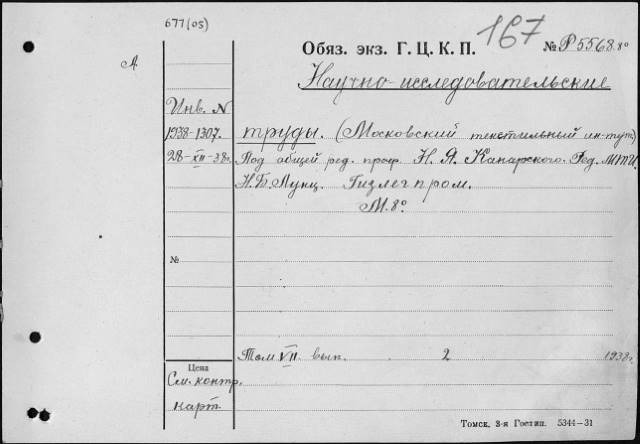 677(05)
Обяз. экз. Г. Ц. К. П. 167 № Р5568 8°
А
Научно-исследовательские
Инв. N
1938-1307. труды. (Московский текстильный ин-тут)
28-XII-38г. Под общей ред. проф. Н. Я. Канарского. Ред. МТИ.
Н. Б. Лунц. Гизлегпром.
М. 8°
№
Том VII. вып. 2 1938г.
Цена
См. контр.
карт
Томск, 3-я Гостип. 5344—31